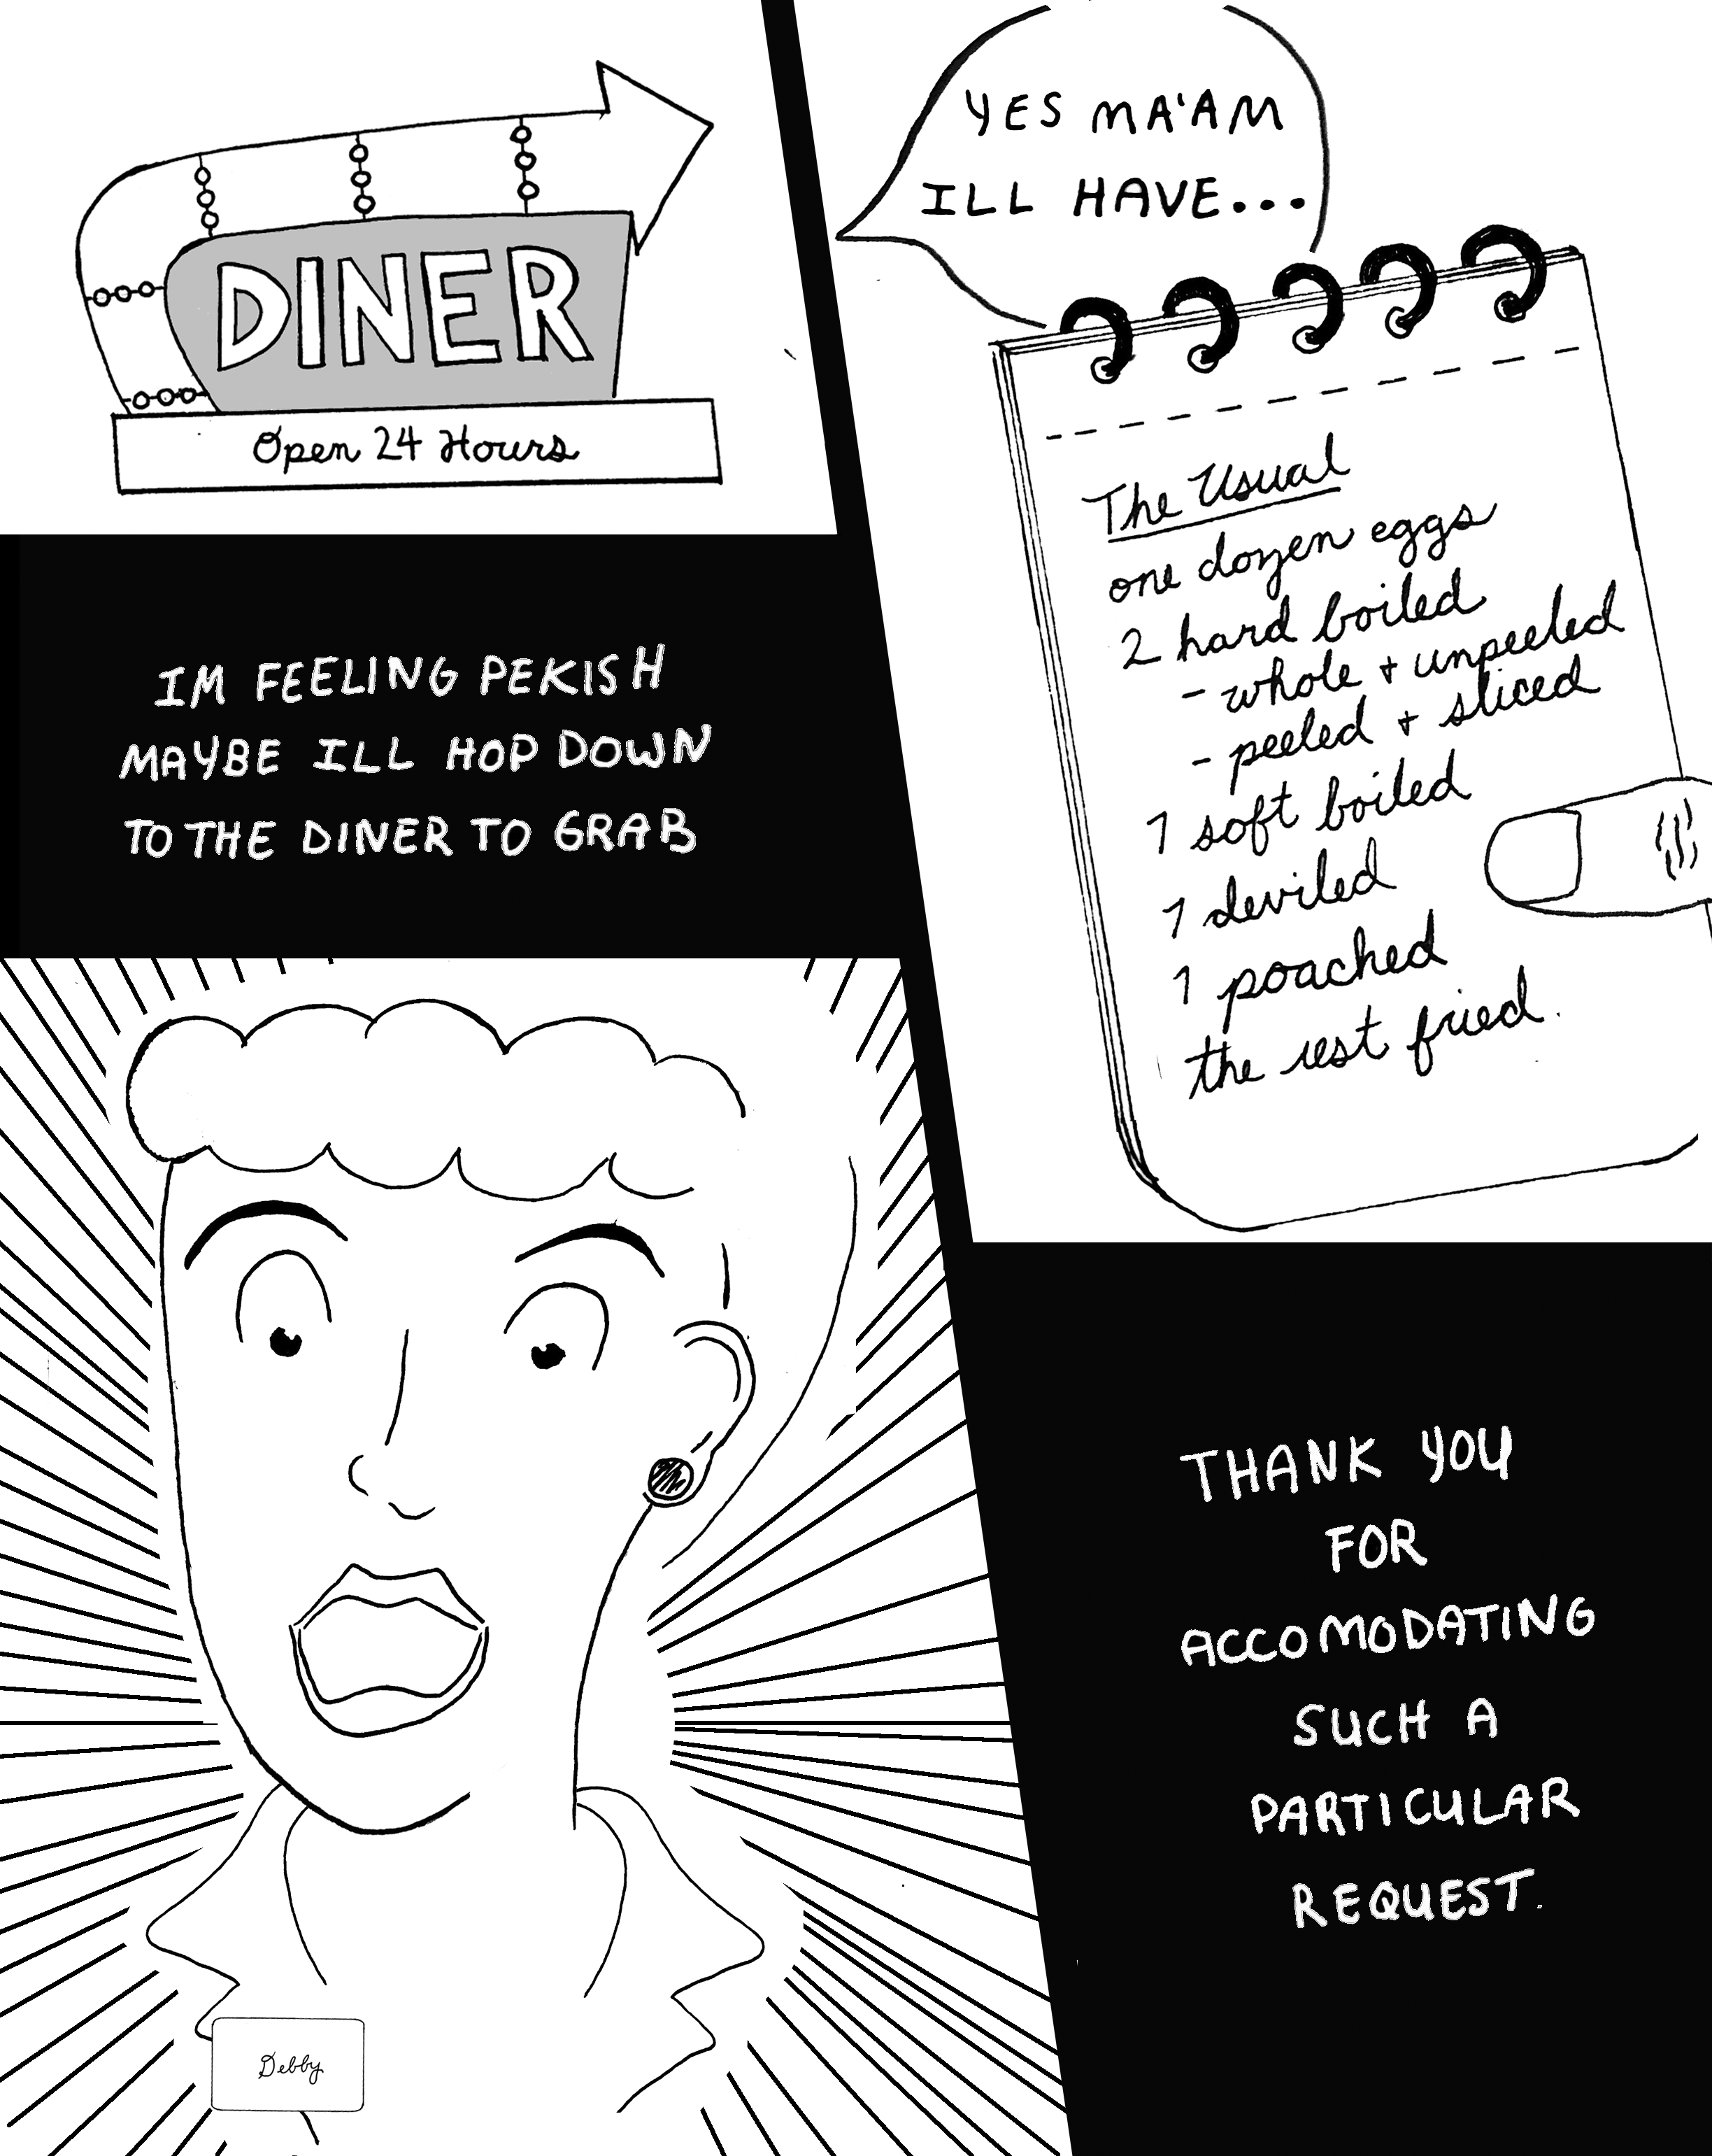 DINER
Open 24 Hours
IM FEELING PEKISH
MAYBE ILL HOP DOWN
TO THE DINER TO GRAB
YES MA'AM
ILL HAVE...
The Usual
one dozen eggs
2 hard boiled
- whole + unpeeled
- peeled + sliced
1 soft boiled
1 deviled
1 poached
the rest fried.
Debby
THANK YOU
FOR
ACCOMODATING
SUCH A
PARTICULAR
REQUEST.